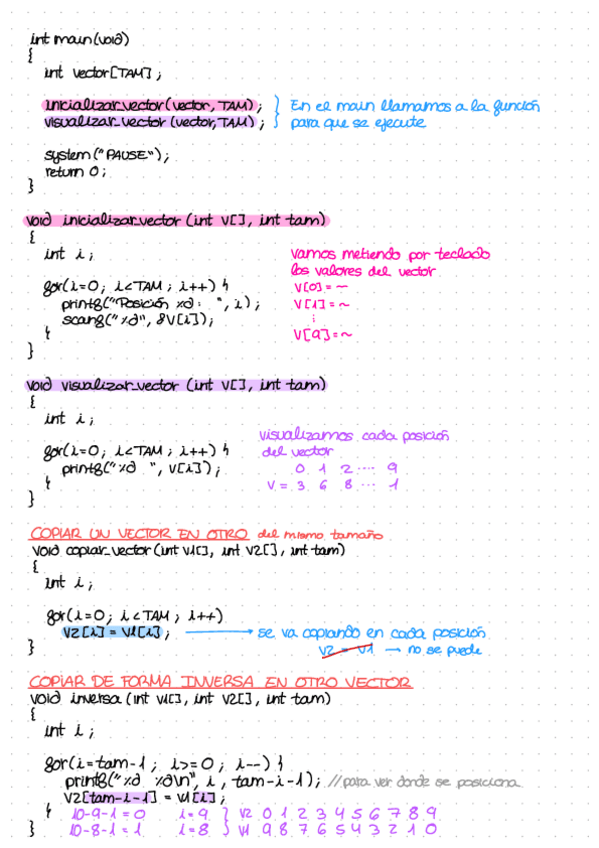 int main(void)
{
int vector[TAM];
inicializar_vector(vector, TAM); } En el main llamamos a la función
visualizar_vector(vector, TAM); para que se ejecute
system("PAUSE");
return 0;
}
void inicializar_vector (int v[], int tam)
{
int i; vamos metiendo por teclado
los valores del vector
for(i=0; i<TAM; i++) { v[0]= ~
printf("Posición %d: ", i); v[1]= ~
scanf("%d", &v[i]); :
} v[9]= ~
}
void visualizar_vector (int v[], int tam)
{
int i;
visualizamos cada posición
for(i=0; i<TAM; i++) { del vector
printf("%d ", v[i]); 0 1 2 ... 9
} v = 3 6 8 ... 1
}
COPIAR UN VECTOR EN OTRO del mismo tamaño
void copiar_vector(int v1[], int v2[], int tam)
{
int i;
for(i=0; i<TAM; i++)
v2[i] = v1[i]; → se va copiando en cada posición
} v2 = v1 → no se puede
COPIAR DE FORMA INVERSA EN OTRO VECTOR
void inversa (int v1[], int v2[], int tam)
{
int i;
for(i=tam-1; i>=0; i--) {
printf("%d %d\n", i, tam-i-1); //para ver donde se posiciona
v2[tam-i-1] = v1[i];
} 10-9-1=0 i=9 } v2 0 1 2 3 4 5 6 7 8 9
} 10-8-1=1 i=8 v1 9 8 7 6 5 4 3 2 1 0